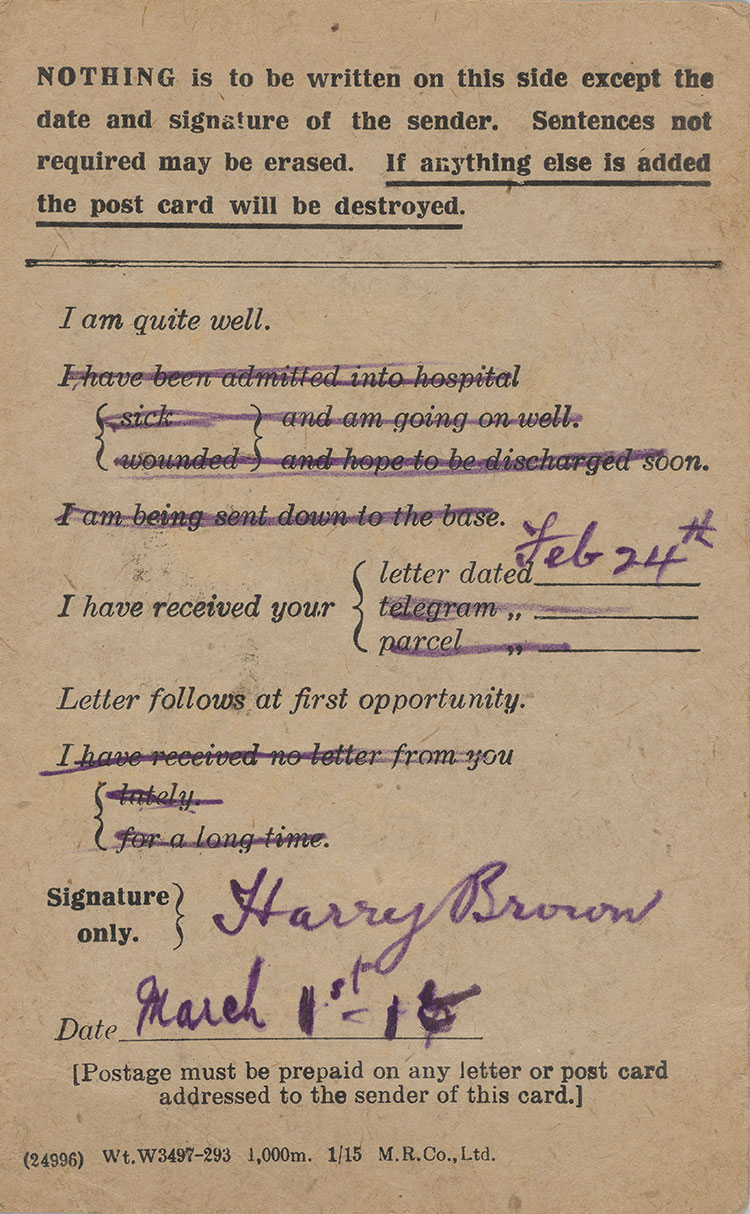 NOTHING is to be written on this side except the
date and signature of the sender. Sentences not
required may be erased. If anything else is added
the post card will be destroyed.
I am quite well.
I have been admitted into hospital
sick and am going on well.
wounded and hope to be discharged soon.
I am being sent down to the base.
letter dated Feb 24th
I have received your
telegram „
parcel „
Letter follows at first opportunity.
I have received no letter from you
lately.
for a long time.
Signature
only.
Harry Brown
Date March 1st - 16
[Postage must be prepaid on any letter or post card
addressed to the sender of this card.]
(24996) Wt.W3497-293 1,000m. 1/15 M.R.Co.,Ltd.